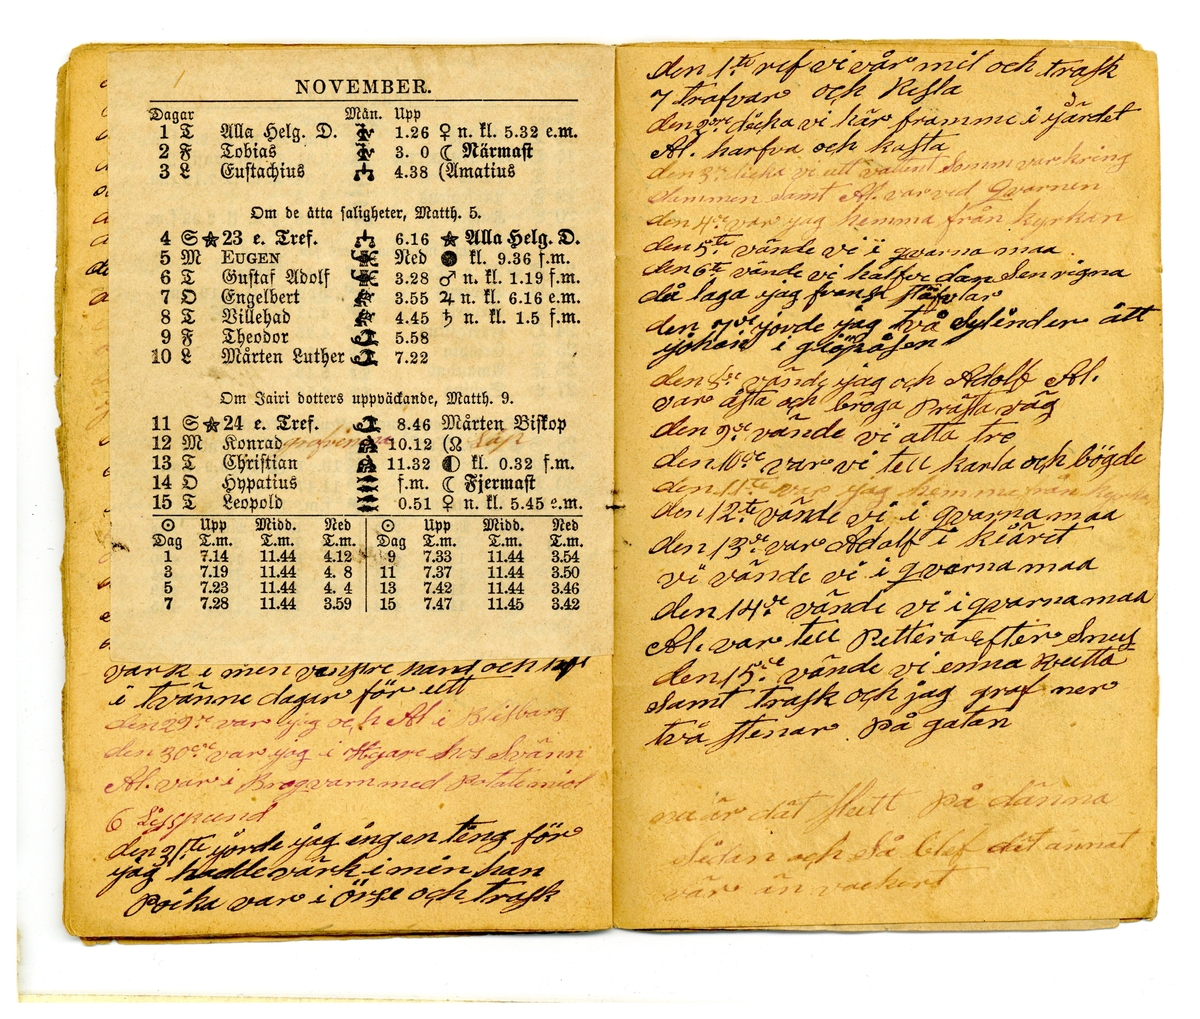 NOVEMBER.
Dagar Mån. Upp
1 T Alla Helg. D. 1.26 ♀ n. kl. 5.32 e.m.
2 F Tobias 3. 0 ☾ Närmast
3 L Eustachius 4.38 (Amatius
Om de åtta saligheter, Matth. 5.
4 S ★ 23 e. Tref. 6.16 ★ Alla Helg. D.
5 M EUGEN Ned ● kl. 9.36 f.m.
6 T Gustaf Adolf 3.28 ♂ n. kl. 1.19 f.m.
7 O Engelbert 3.55 ♃ n. kl. 6.16 e.m.
8 T Villehad 4.45 ♄ n. kl. 1.5 f.m.
9 F Theodor 5.58
10 L Mårten Luther 7.22
Om Jairi dotters uppväckande, Matth. 9.
11 S ★ 24 e. Tref. 8.46 Mårten Biskop
12 M Konrad 10.12 (☊
13 T Christian 11.32 ◐ kl. 0.32 f.m.
14 O Hypatius f.m. ☾ Fjermast
15 T Leopold 0.51 ♀ n. kl. 5.45 e.m.
☉ Upp Midd. Ned ☉ Upp Midd. Ned
Dag T.m. T.m. T.m. Dag T.m. T.m. T.m.
1 7.14 11.44 4.12 9 7.33 11.44 3.54
3 7.19 11.44 4. 8 11 7.37 11.44 3.50
5 7.23 11.44 4. 4 13 7.42 11.44 3.46
7 7.28 11.44 3.59 15 7.47 11.45 3.42
värk i men vänstre hand och
i tvänne dagar för ett
den 29de var jag och Al. i Blisbarg
den 30de var jag i hos Svänn
Al. var i Brogvarn med Potatemiöl
6 Lisspund
den 31ste jorde jag ingen ting för
jag hadde värk i min han
Poika var i Örse och trask
den 1ste ref vi vår mil och trask
7 trafvar och Rista
den 2dre däcka vi här framme i järdet
Al. harfva och kasta
den 3de dicka vi ett vattent somm var kring
dammen samt Al. var ved Qvarnen
den 4de var jag hemma från kyrkan
den 5te vände vi i qvarna maa
den 6te vände vi halfve dan Sen rigna
då laga jag fransk stäfvlar
den 7de jorde jag två Sylinder ått
Johan i glöpåsen
den 8de vände jag och Adolf Al.
var åsta och broga Prästa väg
den 9de vände vi åtta tre
den 10de var vi tell karla och bögde
den 11te var jag hemma från kyrkan
den 12te vände vi i qvarna maa
den 13de var Adolf i kiäret
vi vände vi i qvarna maa
den 14de vände vi i qvarna maa
Al. var tell Pettera efter Snus
den 15de vände vi enna Rutta
samt trask och jag graf ner
två stenar på gatan
nu är dät slutt på dänna
sidan och Så blef dät annat
vär än vackert